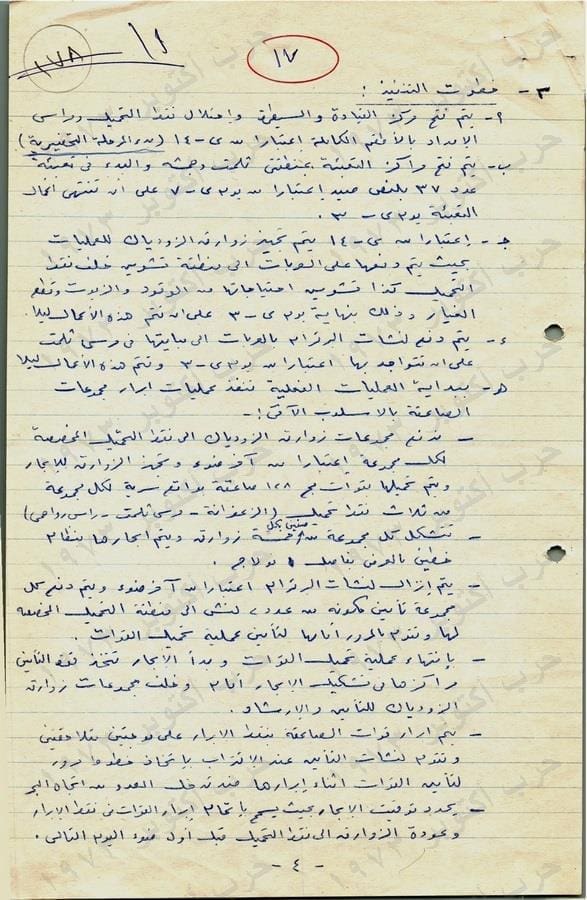 ١٧٨
١٧
٣ - خطوات التنفيذ :
أ - يتم فتح مركز القيادة والسيطرة واحتلال نقط التحميل ورئاسى
الإمداد بالأطقم الكاملة اعتبارا من ى - ١٤ (بدء المرحلة التحضيرية)
ب - يتم فتح مراكز التعبئة بمنطقتى ثلمت ودهشه والبدء فى تعبئة
عدد ٣٧ بلنص صيد اعتبارا من يوم ى - ٧ على ان تنتهى اعمال
التعبئة يوم ى - ٣ .
جـ - إعتبارا من ى - ١٤ يتم تجهيز زوارق الزودياك للعمليات
بحيث يتم دفعها على العربات الى منطقة تشوين خلف نقط
التحميل كذا تشوين احتياجاتها من الوقود والزيوت وقطع
الغيار وذلك بنهاية يوم ى - ٣ على ان تتم هذه الاعمال ليلا .
د - يتم دفع لنشات الرثرام بالعربات الى مبايتها فى مرسى ثلمت
على ان تتواجد بها اعتبارا من يوم ى - ٣ وتتم هذه الاعمال ليلا
هـ - بداية العمليات الفعلية تنفذ عمليات ابرار مجموعات
الصاعقة بالاسلوب الآتى : -
- تدفع مجموعات زوارق الزودياك الى نقط التحميل المخصصة
لكل مجموعة اعتبارا من آخر ضوء وتجهز الزوارق للإبحار
ويتم تحميلها بقوات حجم ١٢٨ صاعقة بواقع سرية لكل مجموعة
من ثلاث نقط تحميل (الزعفرانة - مرسى ثلمت - راس رواحمى)
- تتشكل كل مجموعة من خمسة زوارق ويتم ابحارها بنظام
خطين بالعرض بفاصل
- يتم إنزال لنشات الرثرام اعتبارا من آخر ضوء ويتم دفع كل
مجموعة تأمين مكونة من عدد ٢ لنش الى منطقة التحميل المخصصه
لها وتقوم بالمرور أمامها لتأمين عملية تحميل القوات .
- بإنتهاء عملية تحميل القوات وبدأ الابحار تتخذ قطع التأمين
مراكزها فى تشكيل الابحار أمام وخلف مجموعات زوارق
الزودياك للتأمين والإرشاد .
- يتم ابرار قوات الصاعقة بنقط الابرار على موجتين متلاحقتين
وتقوم لنشات التأمين عند الإقتراب بإتخاذ خطوط مرور
لتأمين القوات اثناء إبرارها ضد تدخل العدو من اتجاه البحر
- يحدد توقيت الإبحار بحيث يسمح بإتمام إبرار القوات فى نقط الإبرار
وعودة الزوارق الى نقط التحميل قبل أول ضوء اليوم التالى .
- ٤ -